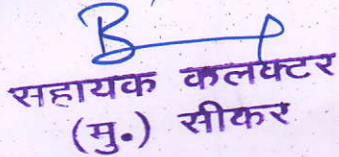 सहायक कलक्टर
(मु.) सीकर